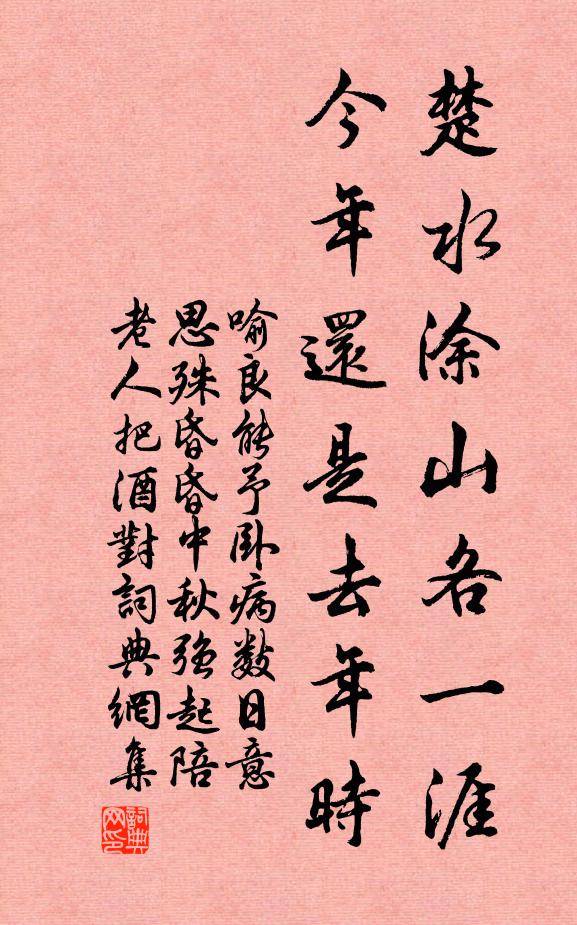 楚水涂山各一涯
今年還是去年時
喻良能予卧病数日意
思殊昏昏中秋强起陪
老人把酒對詞典網集
詞典网印